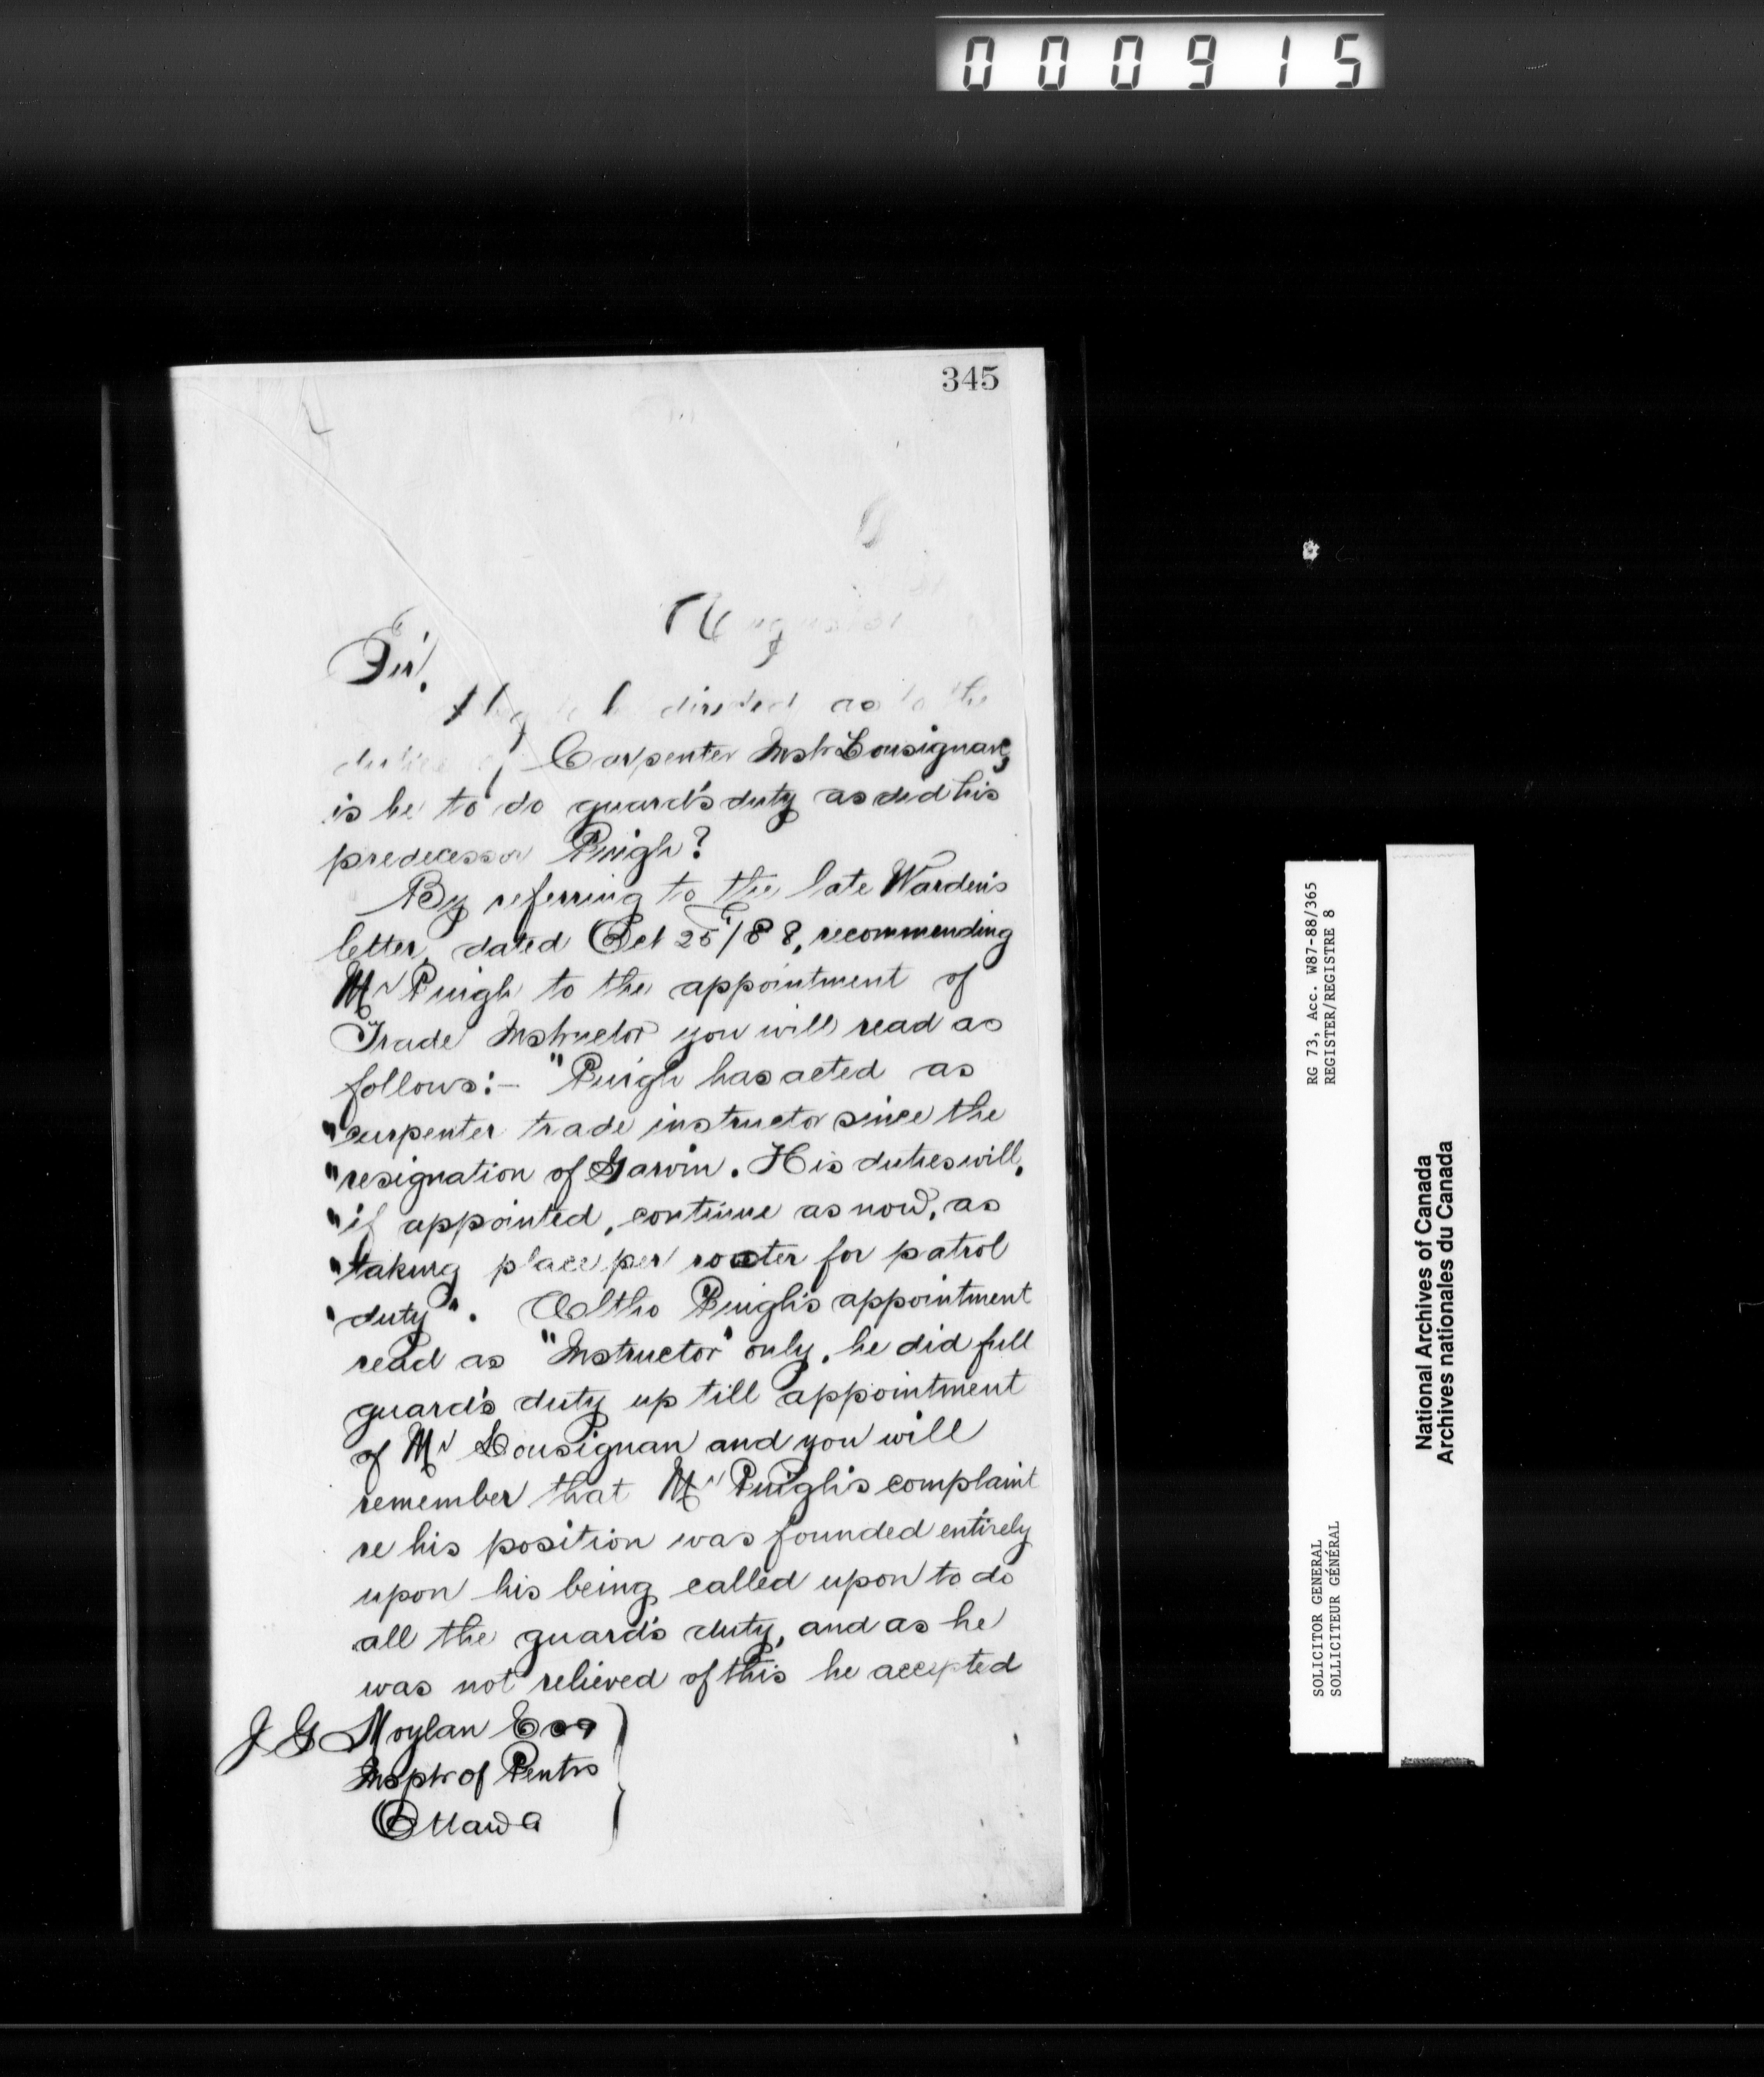 000915
345
August
Sir,
I beg to be directed as to the
duties of Carpenter Instr Lousignan,
is he to do guard's duty as did his
predecessor Pugh?
By referring to the late Warden's
letter, dated Oct 25/88, recommending
Mr Pugh to the appointment of
Trade Instructor you will read as
follows:- "Pugh has acted as
"carpenter trade instructor since the
"resignation of Garvin. His duties will,
"if appointed, continue as now, as
"taking place per roster for patrol
"duty". Altho Pugh's appointment
read as "Instructor" only, he did full
guard's duty up till appointment
of Mr Lousignan and you will
remember that Mr Pugh's complaint
re his position was founded entirely
upon his being called upon to do
all the guard's duty, and as he
was not relieved of this he accepted
J G Moylan Esq
Insptr of Pentrs
Ottawa
RG 73, Acc. W87-88/365
REGISTER/REGISTRE 8
SOLICITOR GENERAL
SOLLICITEUR GÉNÉRAL
National Archives of Canada
Archives nationales du Canada